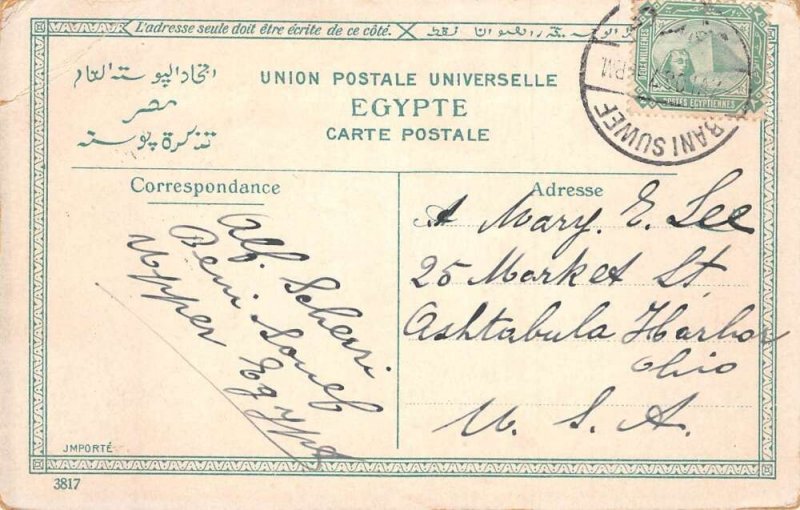 L'adresse seule doit être écrite de ce côté.
اتحاد البوسته العام
مصر
تذكرة بوسته
UNION POSTALE UNIVERSELLE
EGYPTE
CARTE POSTALE
POSTES EGYPTIENNES
BANI SUWEF
Correspondance
Alf. Scherri
Beni Souef
Upper Egypt
Adresse
A Mary. E. Lee
25 Market St
Ashtabula Harbor
Ohio
U. S. A.
JMPORTÉ
3817